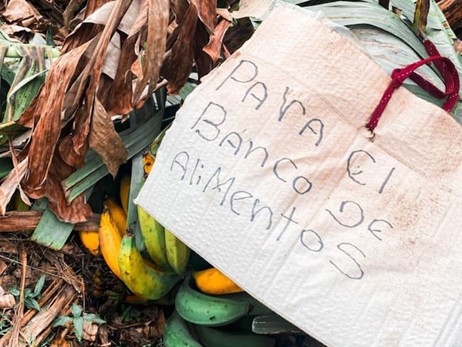 PARA El
BANCO DE
AliMeNtOS